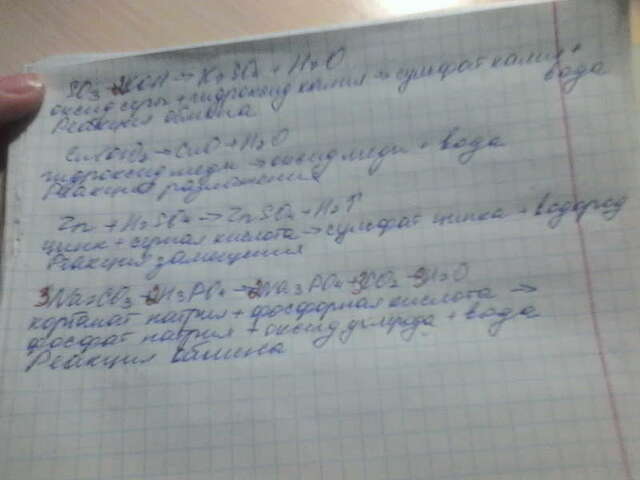 SO3 + 2KOH → K2SO4 + H2O
оксид серы + гидроксид калия → сульфат калия +
вода
Реакция обмена
Cu(OH)2 → CuO + H2O
гидроксид меди → оксид меди + вода
Реакция разложения
Zn + H2SO4 → ZnSO4 + H2↑
цинк + серная кислота → сульфат цинка + водород
Реакция замещения
3Na2CO3 + 2H3PO4 → 2Na3PO4 + 3CO2 + 3H2O
карбонат натрия + фосфорная кислота →
фосфат натрия + оксид углерода + вода
Реакция обмена